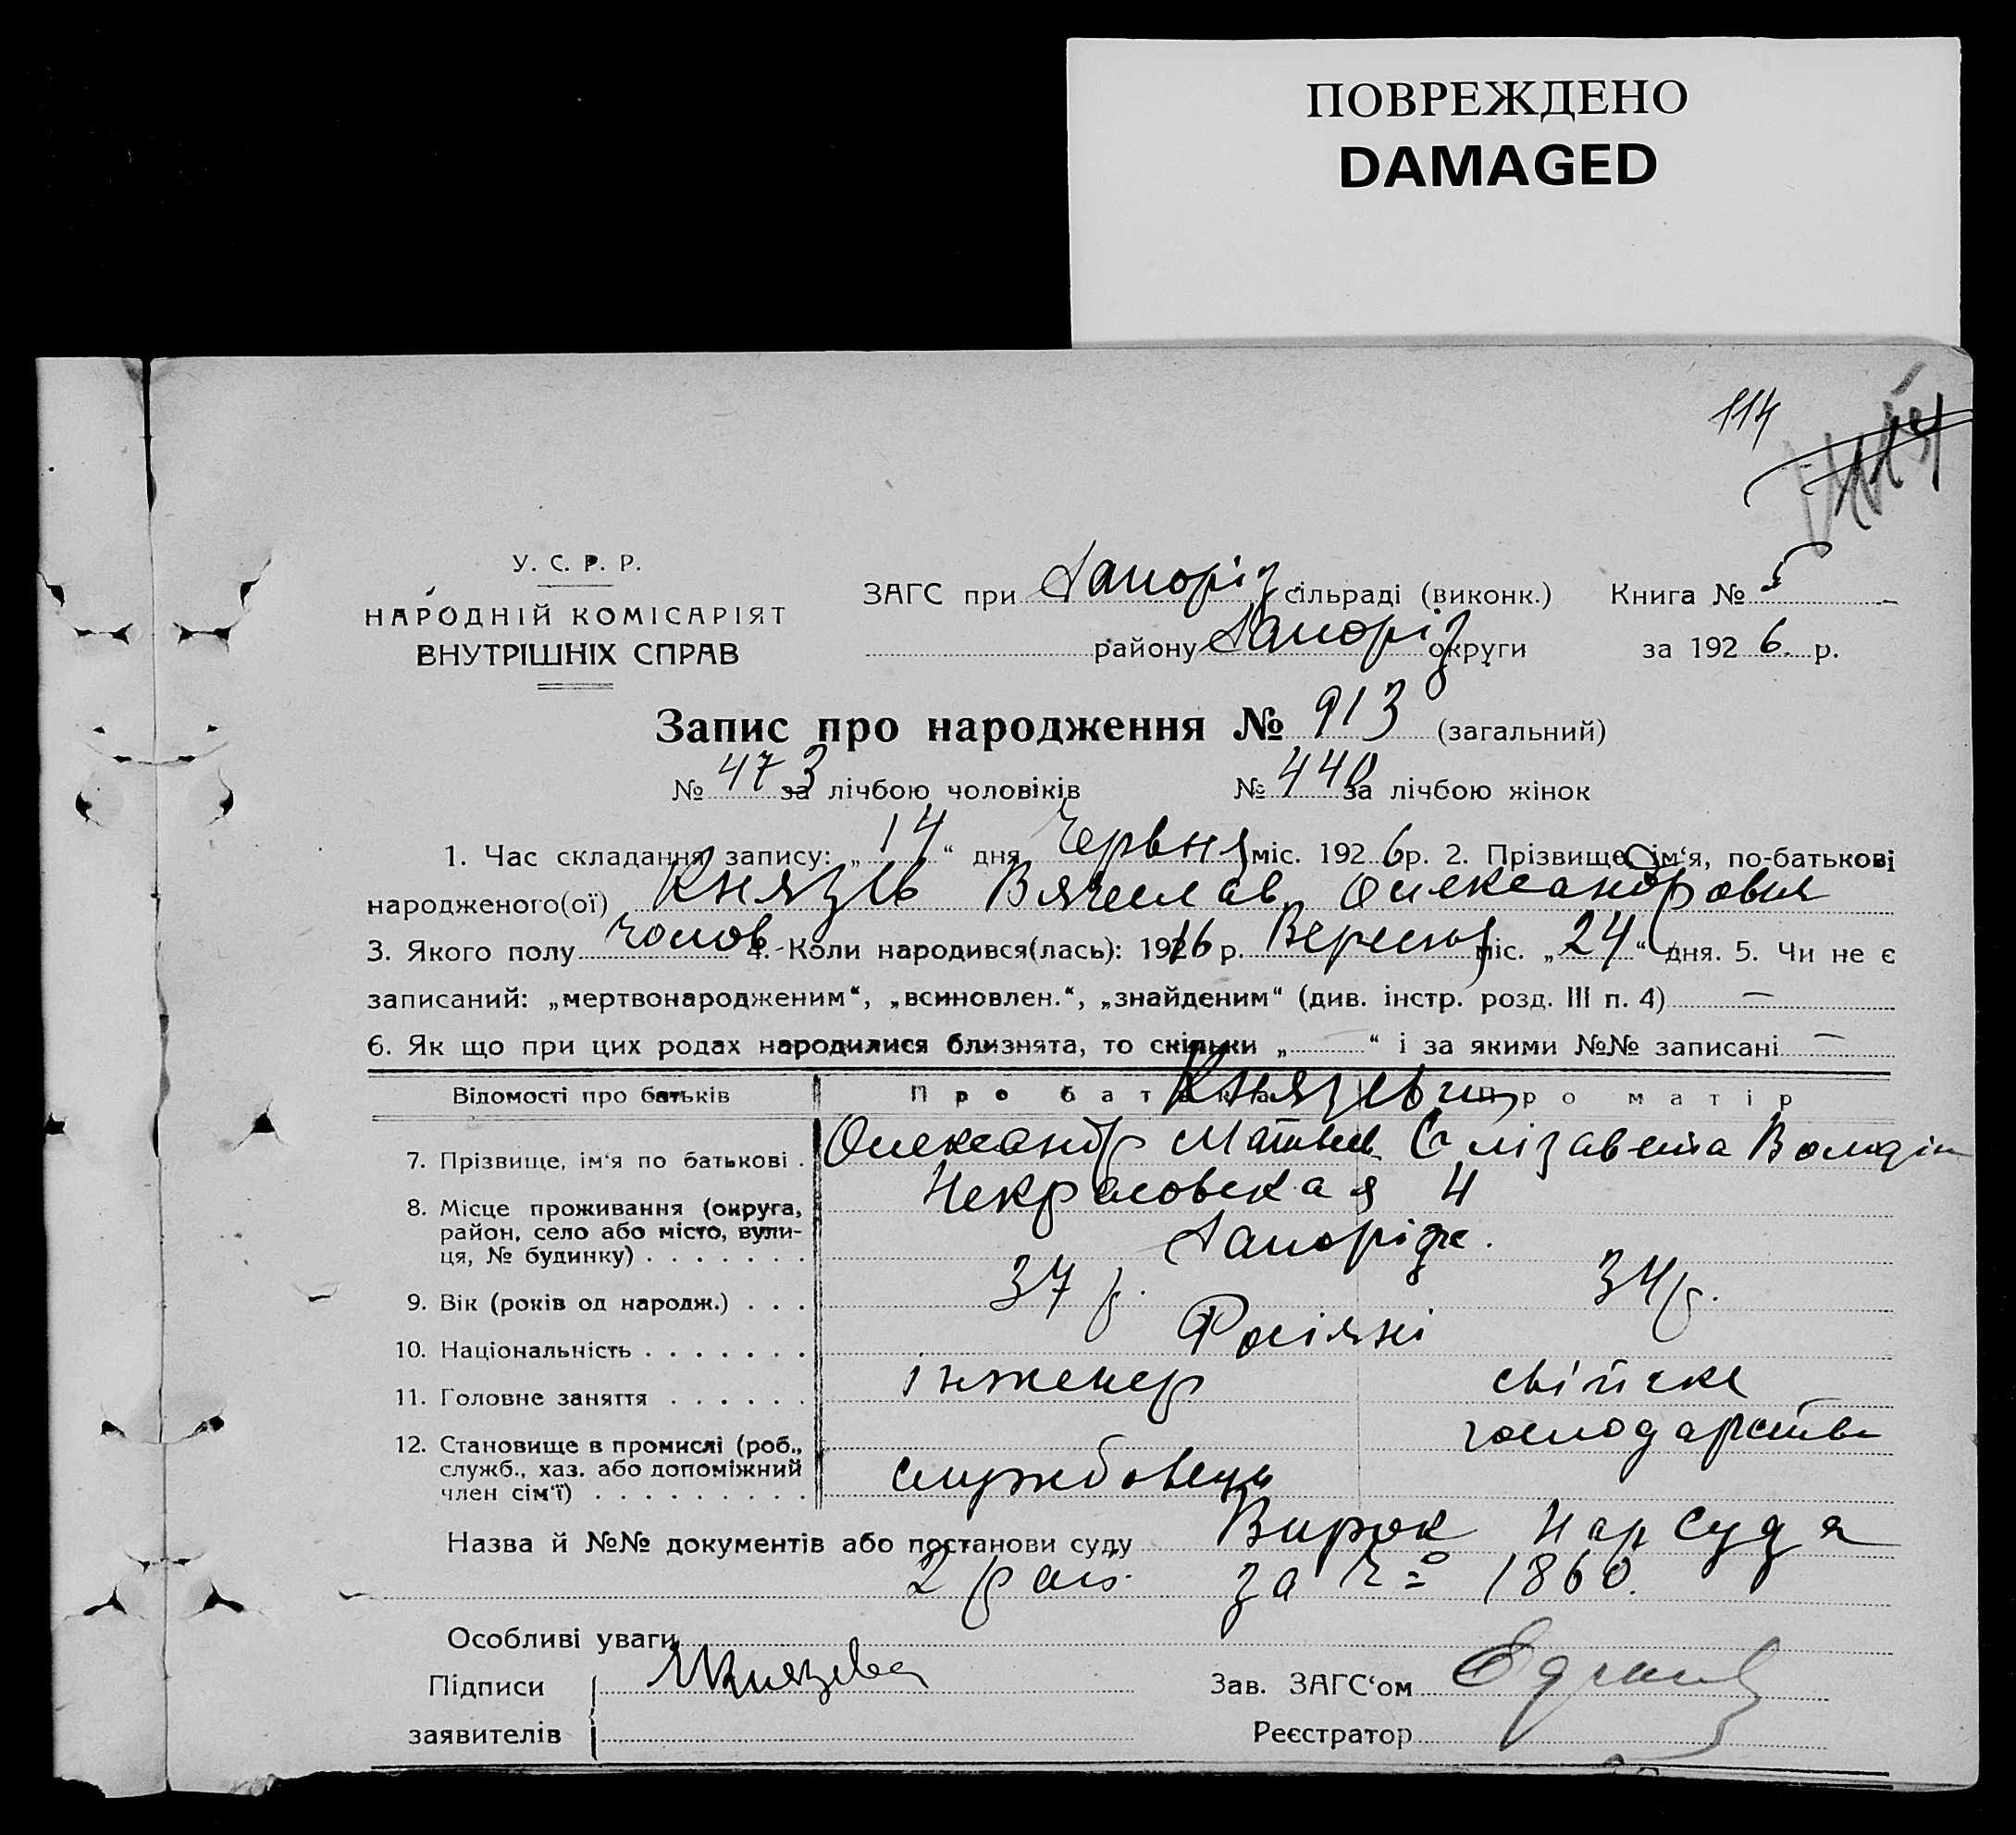 ПОВРЕЖДЕНО
DAMAGED
114
У. С. Р. Р.
НАРОДНІЙ КОМІСАРІЯТ
ВНУТРІШНІХ СПРАВ
ЗАГС при Запоріз сільраді (виконк.) Книга № 5
району Запоріз округи за 1926 р.
Запис про народження № 913 (загальний)
№ 473 за лічбою чоловіків № 440 за лічбою жінок
1. Час складання запису: „14“ дня Червня міс. 1926 р. 2. Прізвище, ім‘я, по-батькові
народженого(ої) Князів Вячеслав Олександровия
3. Якого полу чолов 4. Коли народився(лась): 1916 р. Вересня міс. „24“ дня. 5. Чи не є
записаний: „мертвонародженим“, „всиновлен.“, „знайденим“ (див. інстр. розд. III п. 4) —
6. Як що при цих родах народилися близнята, то скільки „—“ і за якими №№ записані —
Відомості про батьків Про батька Про матір
Князеви
7. Прізвище, ім‘я по батькові . Олександр Матвеев Єлізавета Володім
8. Місце проживання (округа, район, село або місто, вули-ця, № будинку) . . . . . . . Некрасовская 4
Запоріже.
9. Вік (років од народж.) . . . 37 р. 34 р.
10. Національність . . . . . . . Росіяні
11. Головне заняття . . . . . . інженер свійске
господарство
12. Становище в промислі (роб., служб., хаз. або допоміжний член сім‘ї) . . . . . . . . . службовець
Назва й №№ документів або постанови суду Вирок Нарсуда
2 рай. за № 1860.
Особливі уваги
Підписи Князева Зав. ЗАГС‘ом
заявителів Реєстратор